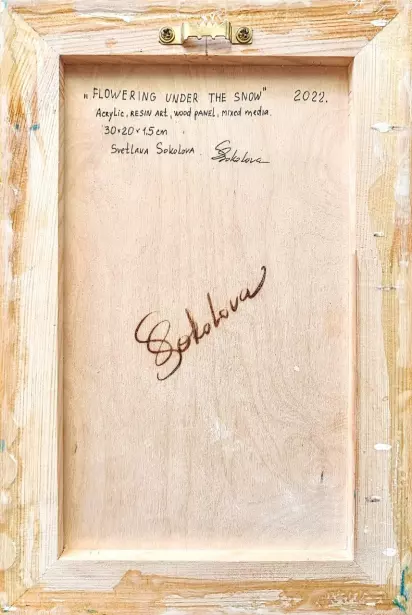 „FLOWERING UNDER THE SNOW" 2022.
Acrylic, RESIN ART, WOOD PANEL, MIXED MEDIA.
30×20×1.5 cm
Svetlana Sokolova. SSokolova
SSokolova